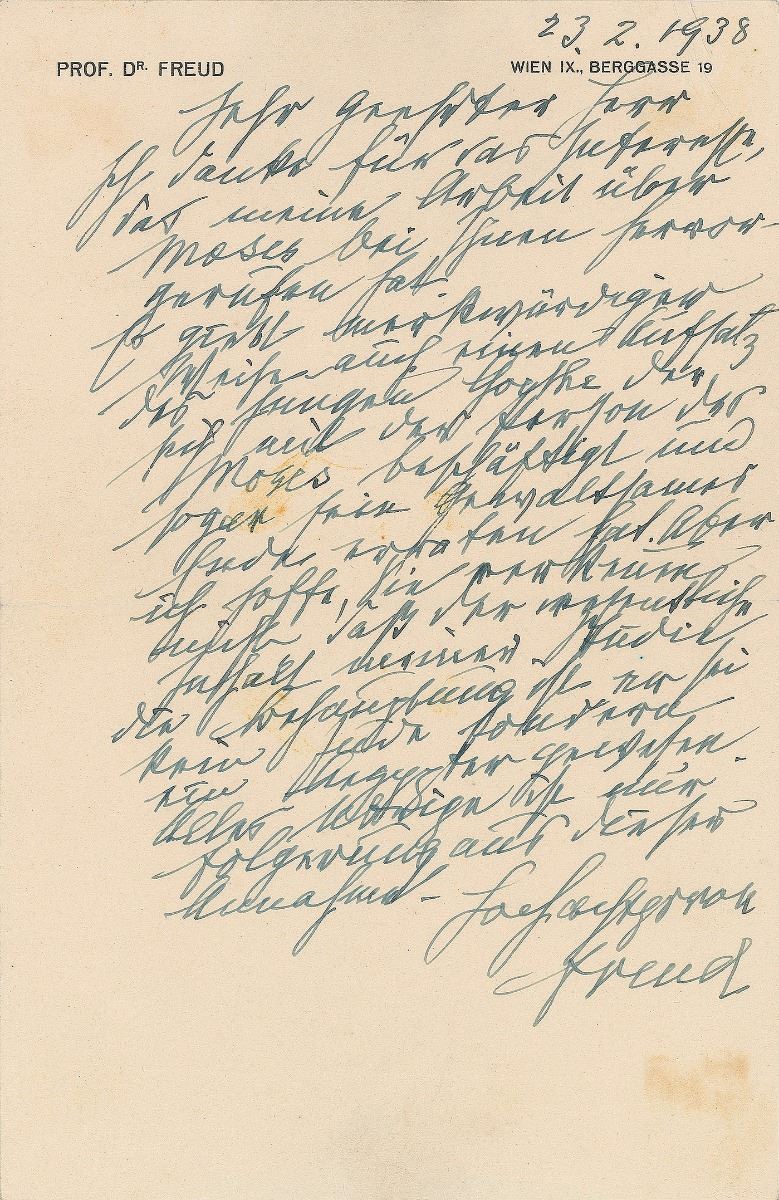 23. 2. 1938
PROF. DR. FREUD WIEN IX., BERGGASSE 19
Sehr geehrter Herr
Ich danke für das Interesse,
das meine Arbeit über
Moses bei Ihnen hervor-
gerufen hat.
Es giebt merkwürdiger
Weise auch einen Aufsatz
des jungen Goethe der
sich mit der Person des
Moses beschäftigt und
sogar sein gewaltsames
Ende erraten hat. Aber
ich hoffe, Sie verkennen
nicht daß der wesentliche
Inhalt meiner Studie
die Behauptung ist er sei
kein Jude sondern
ein Aegypter gewesen.
Alles Übrige ist nur
Folgerung aus dieser
Annahme. –
Hochachtungsvoll
Freud